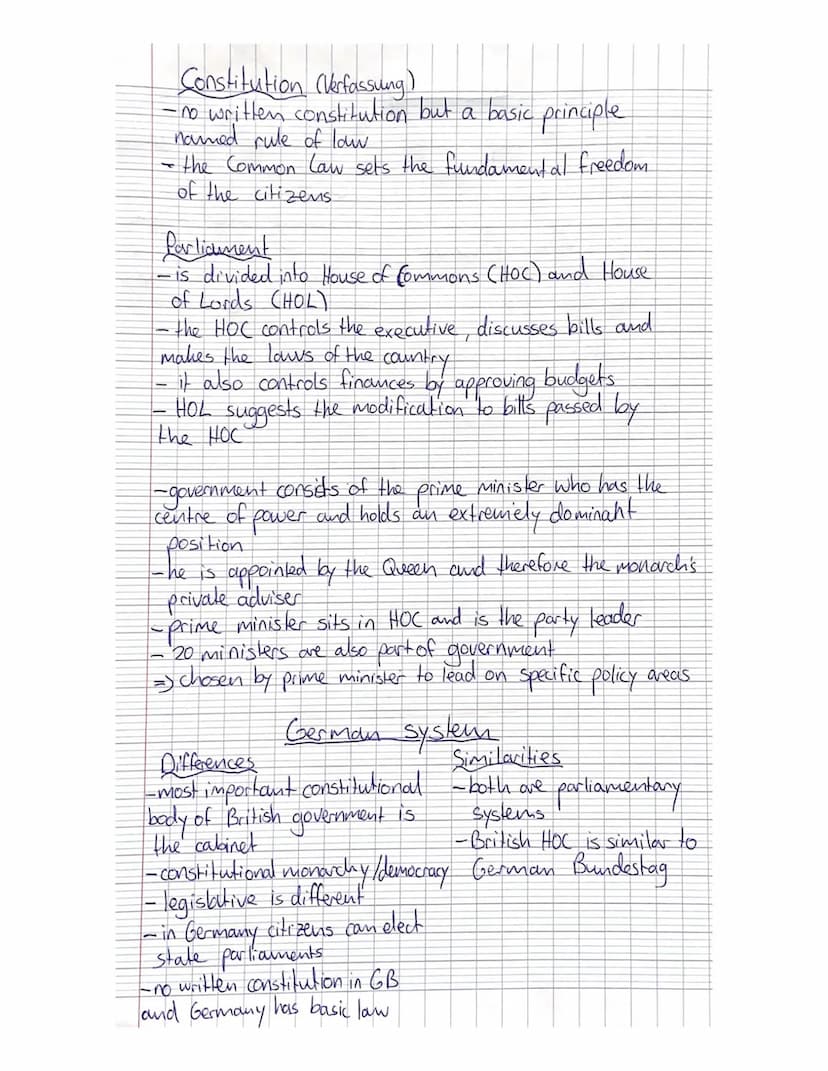 Constitution (Verfassung)
- no written constitution but a basic principle
named rule of law
- the Common Law sets the fundamental freedom
of the citizens
Parliament
- is divided into House of Commons (HOC) and House
of Lords (HOL)
- the HOC controls the executive, discusses bills and
makes the laws of the country
- it also controls finances by approving budgets
- HOL suggests the modification to bills passed by
the HOC
- government consists of the prime minister who has the
centre of power and holds an extremely dominant
position
- he is appointed by the Queen and therefore the monarch's
private adviser
- prime minister sits in HOC and is the party leader
- 20 ministers are also part of government
=> chosen by prime minister to lead on specific policy areas
German system
Differences
- most important constitutional
body of British government is
the cabinet
- constitutional monarchy/democracy
- legislative is different
- in Germany citizens can elect
state parliaments
- no written constitution in GB
and Germany has basic law
Similarities
- both are parliamentary
systems
- British HOC is similar to
German Bundestag